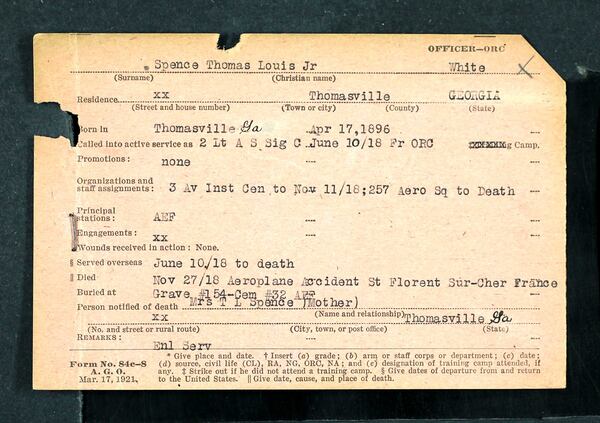 OFFICER—ORC
Spence Thomas Louis Jr White X
(Surname) (Christian name)
Residence xx Thomasville GEORGIA
(Street and house number) (Town or city) (County) (State)
Born in Thomasville Ga Apr 17,1896
Called into active service as 2 Lt A S Sig C June 10/18 Fr ORC Camp.
Promotions: none
Organizations and
staff assignments: 3 Av Inst Cen to Nov 11/18;257 Aero Sq to Death
Principal
stations: AEF
Engagements: xx
Wounds received in action: None.
§ Served overseas June 10/18 to death
‖ Died Nov 27/18 Aeroplane Accident St Florent Sur-Cher France
Buried at Grave #154-Cem #32 AEF
Person notified of death Mrs T L Spence (Mother)
(Name and relationship)
xx Thomasville Ga
(No. and street or rural route) (City, town, or post office) (State)
REMARKS: Enl Serv
Form No. 84c-8
A. G. O.
Mar. 17, 1921.
* Give place and date. † Insert (a) grade; (b) arm or staff corps or department; (c) date;
(d) source, civil life (CL), RA, NG, ORC, NA; and (e) designation of training camp attended, if
any. ‡ Strike out if he did not attend a training camp. § Give dates of departure from and return
to the United States. ‖ Give date, cause, and place of death.